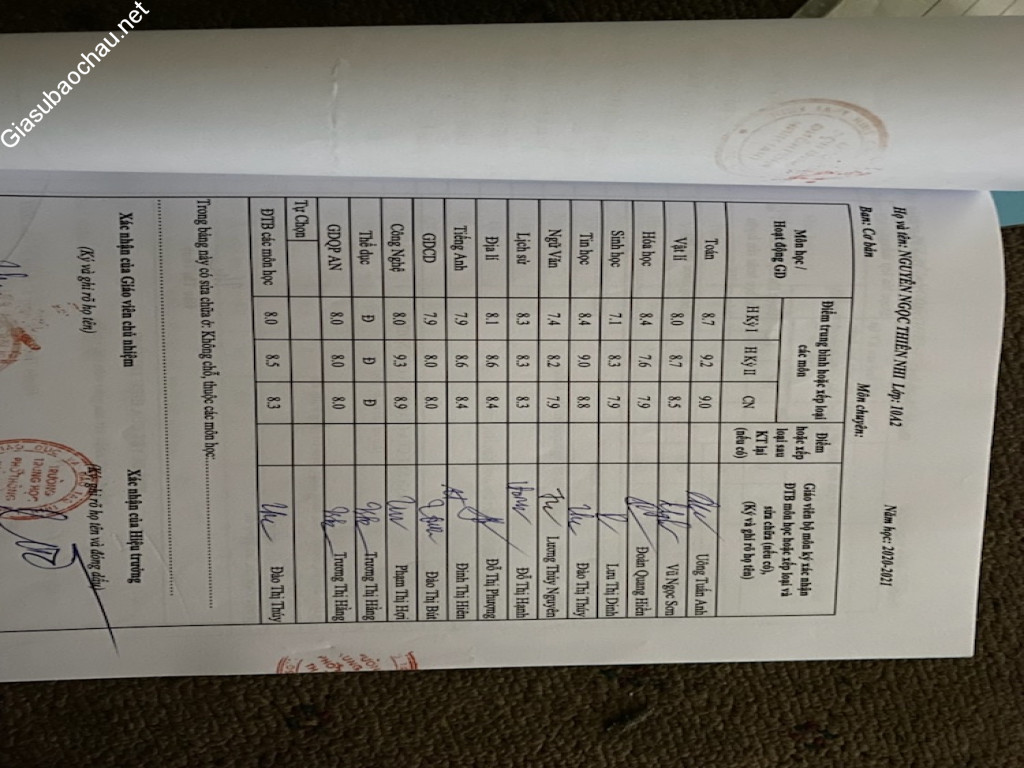 Giasubaochau.net
Họ và tên: NGUYỄN NGỌC THIÊN NHI Lớp: 10A2 Năm học: 2020-2021
Ban: Cơ bản Môn chuyên:
Môn học / Hoạt động GD Điểm trung bình hoặc xếp loại các môn Điểm hoặc xếp loại sau KT lại (nếu có) Giáo viên bộ môn ký xác nhận ĐTB môn học hoặc xếp loại và sửa chữa (nếu có), (Ký và ghi rõ họ tên)
HKỳ I HKỳ II CN
Toán 8.7 9.2 9.0 Uông Tuấn Anh
Vật lí 8.0 8.7 8.5 Vũ Ngọc Sơn
Hóa học 8.4 7.6 7.9 Đoàn Quang Hiến
Sinh học 7.1 8.3 7.9 Lưu Thị Dinh
Tin học 8.4 9.0 8.8 Đào Thị Thúy
Ngữ Văn 7.4 8.2 7.9 Lương Thúy Nguyên
Lịch sử 8.3 8.3 8.3 Đỗ Thị Hạnh
Địa lí 8.1 8.6 8.4 Đỗ Thị Phượng
Tiếng Anh 7.9 8.6 8.4 Đinh Thị Hiên
GDCD 7.9 8.0 8.0 Đào Thị Bút
Công Nghệ 8.0 9.3 8.9 Phạm Thị Hợi
Thể dục Đ Đ Đ Trương Thị Hằng
GDQP AN 8.0 8.0 8.0 Trương Thị Hằng
Tự Chọn
ĐTB các môn học 8.0 8.5 8.3 Đào Thị Thúy
Trong bảng này có sửa chữa ở: Không chỗ, thuộc các môn học:
Xác nhận của Giáo viên chủ nhiệm Xác nhận của Hiệu trưởng
(Ký và ghi rõ họ tên) (Ký, ghi rõ họ tên và đóng dấu)
TRƯỜNG
TRUNG HỌC
PHỔ THÔNG